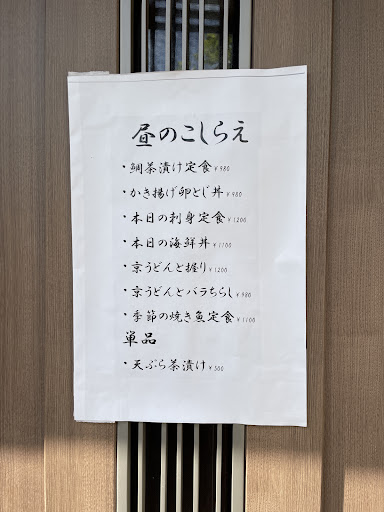 昼のこしらえ
・鯛茶漬け定食 ¥980
・かき揚げ卵とじ丼 ¥980
・本日の刺身定食 ¥1200
・本日の海鮮丼 ¥1100
・京うどんと握り ¥1200
・京うどんとバラちらし ¥980
・季節の焼き魚定食 ¥1100
単品
・天ぷら茶漬け ¥500